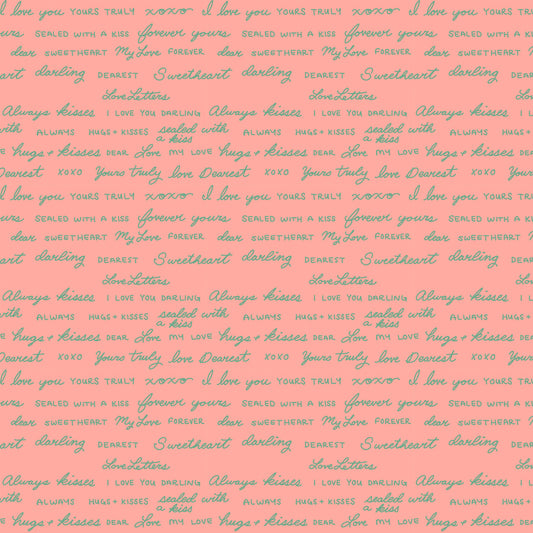 I love you YOURS TRULY xoxo I love you YOURS TRULY xoxo I love you YOURS TRULY
yours SEALED WITH A KISS forever yours SEALED WITH A KISS forever yours SEALED WITH A K
dear SWEETHEART My Love FOREVER dear SWEETHEART My Love FOREVER dear SWEETHEART
art darling DEAREST Sweetheart darling DEAREST Sweetheart darling DEA
Love Letters Love Letters Lo
Always kisses I LOVE YOU DARLING Always kisses I LOVE YOU DARLING Always kisses I L
with ALWAYS HUGS + KISSES sealed with a kiss ALWAYS HUGS + KISSES sealed with a kiss ALWAYS HUGS +
hugs + kisses DEAR Love MY LOVE hugs + kisses DEAR Love MY LOVE hugs + kisses DEAR
Dearest XOXO Yours truly love Dearest XOXO Yours truly love Dearest XOXO Yours
I love you YOURS TRULY xoxo I love you YOURS TRULY xoxo I love you YOURS TRULY
yours SEALED WITH A KISS forever yours SEALED WITH A KISS forever yours SEALED WITH A K
dear SWEETHEART My Love FOREVER dear SWEETHEART My Love FOREVER dear SWEETHEART
art darling DEAREST Sweetheart darling DEAREST Sweetheart darling DEA
Love Letters Love Letters Lo
Always kisses I LOVE YOU DARLING Always kisses I LOVE YOU DARLING Always kisses I L
with ALWAYS HUGS + KISSES sealed with a kiss ALWAYS HUGS + KISSES sealed with a kiss ALWAYS HUGS +
hugs + kisses DEAR Love MY LOVE hugs + kisses DEAR Love MY LOVE hugs + kisses DEAR
Dearest XOXO Yours truly love Dearest XOXO Yours truly love Dearest XOXO Yours
I love you YOURS TRULY xoxo I love you YOURS TRULY xoxo I love you YOURS TRULY
yours SEALED WITH A KISS forever yours SEALED WITH A KISS forever yours SEALED WITH A K
dear SWEETHEART My Love FOREVER dear SWEETHEART My Love FOREVER dear SWEETHEART
art darling DEAREST Sweetheart darling DEAREST Sweetheart darling DEA
Love Letters Love Letters Lo
Always kisses I LOVE YOU DARLING Always kisses I LOVE YOU DARLING Always kisses I L
with ALWAYS HUGS + KISSES sealed with a kiss ALWAYS HUGS + KISSES sealed with a kiss ALWAYS HUGS +
hugs + kisses DEAR Love MY LOVE hugs + kisses DEAR Love MY LOVE hugs + kisses DEAR